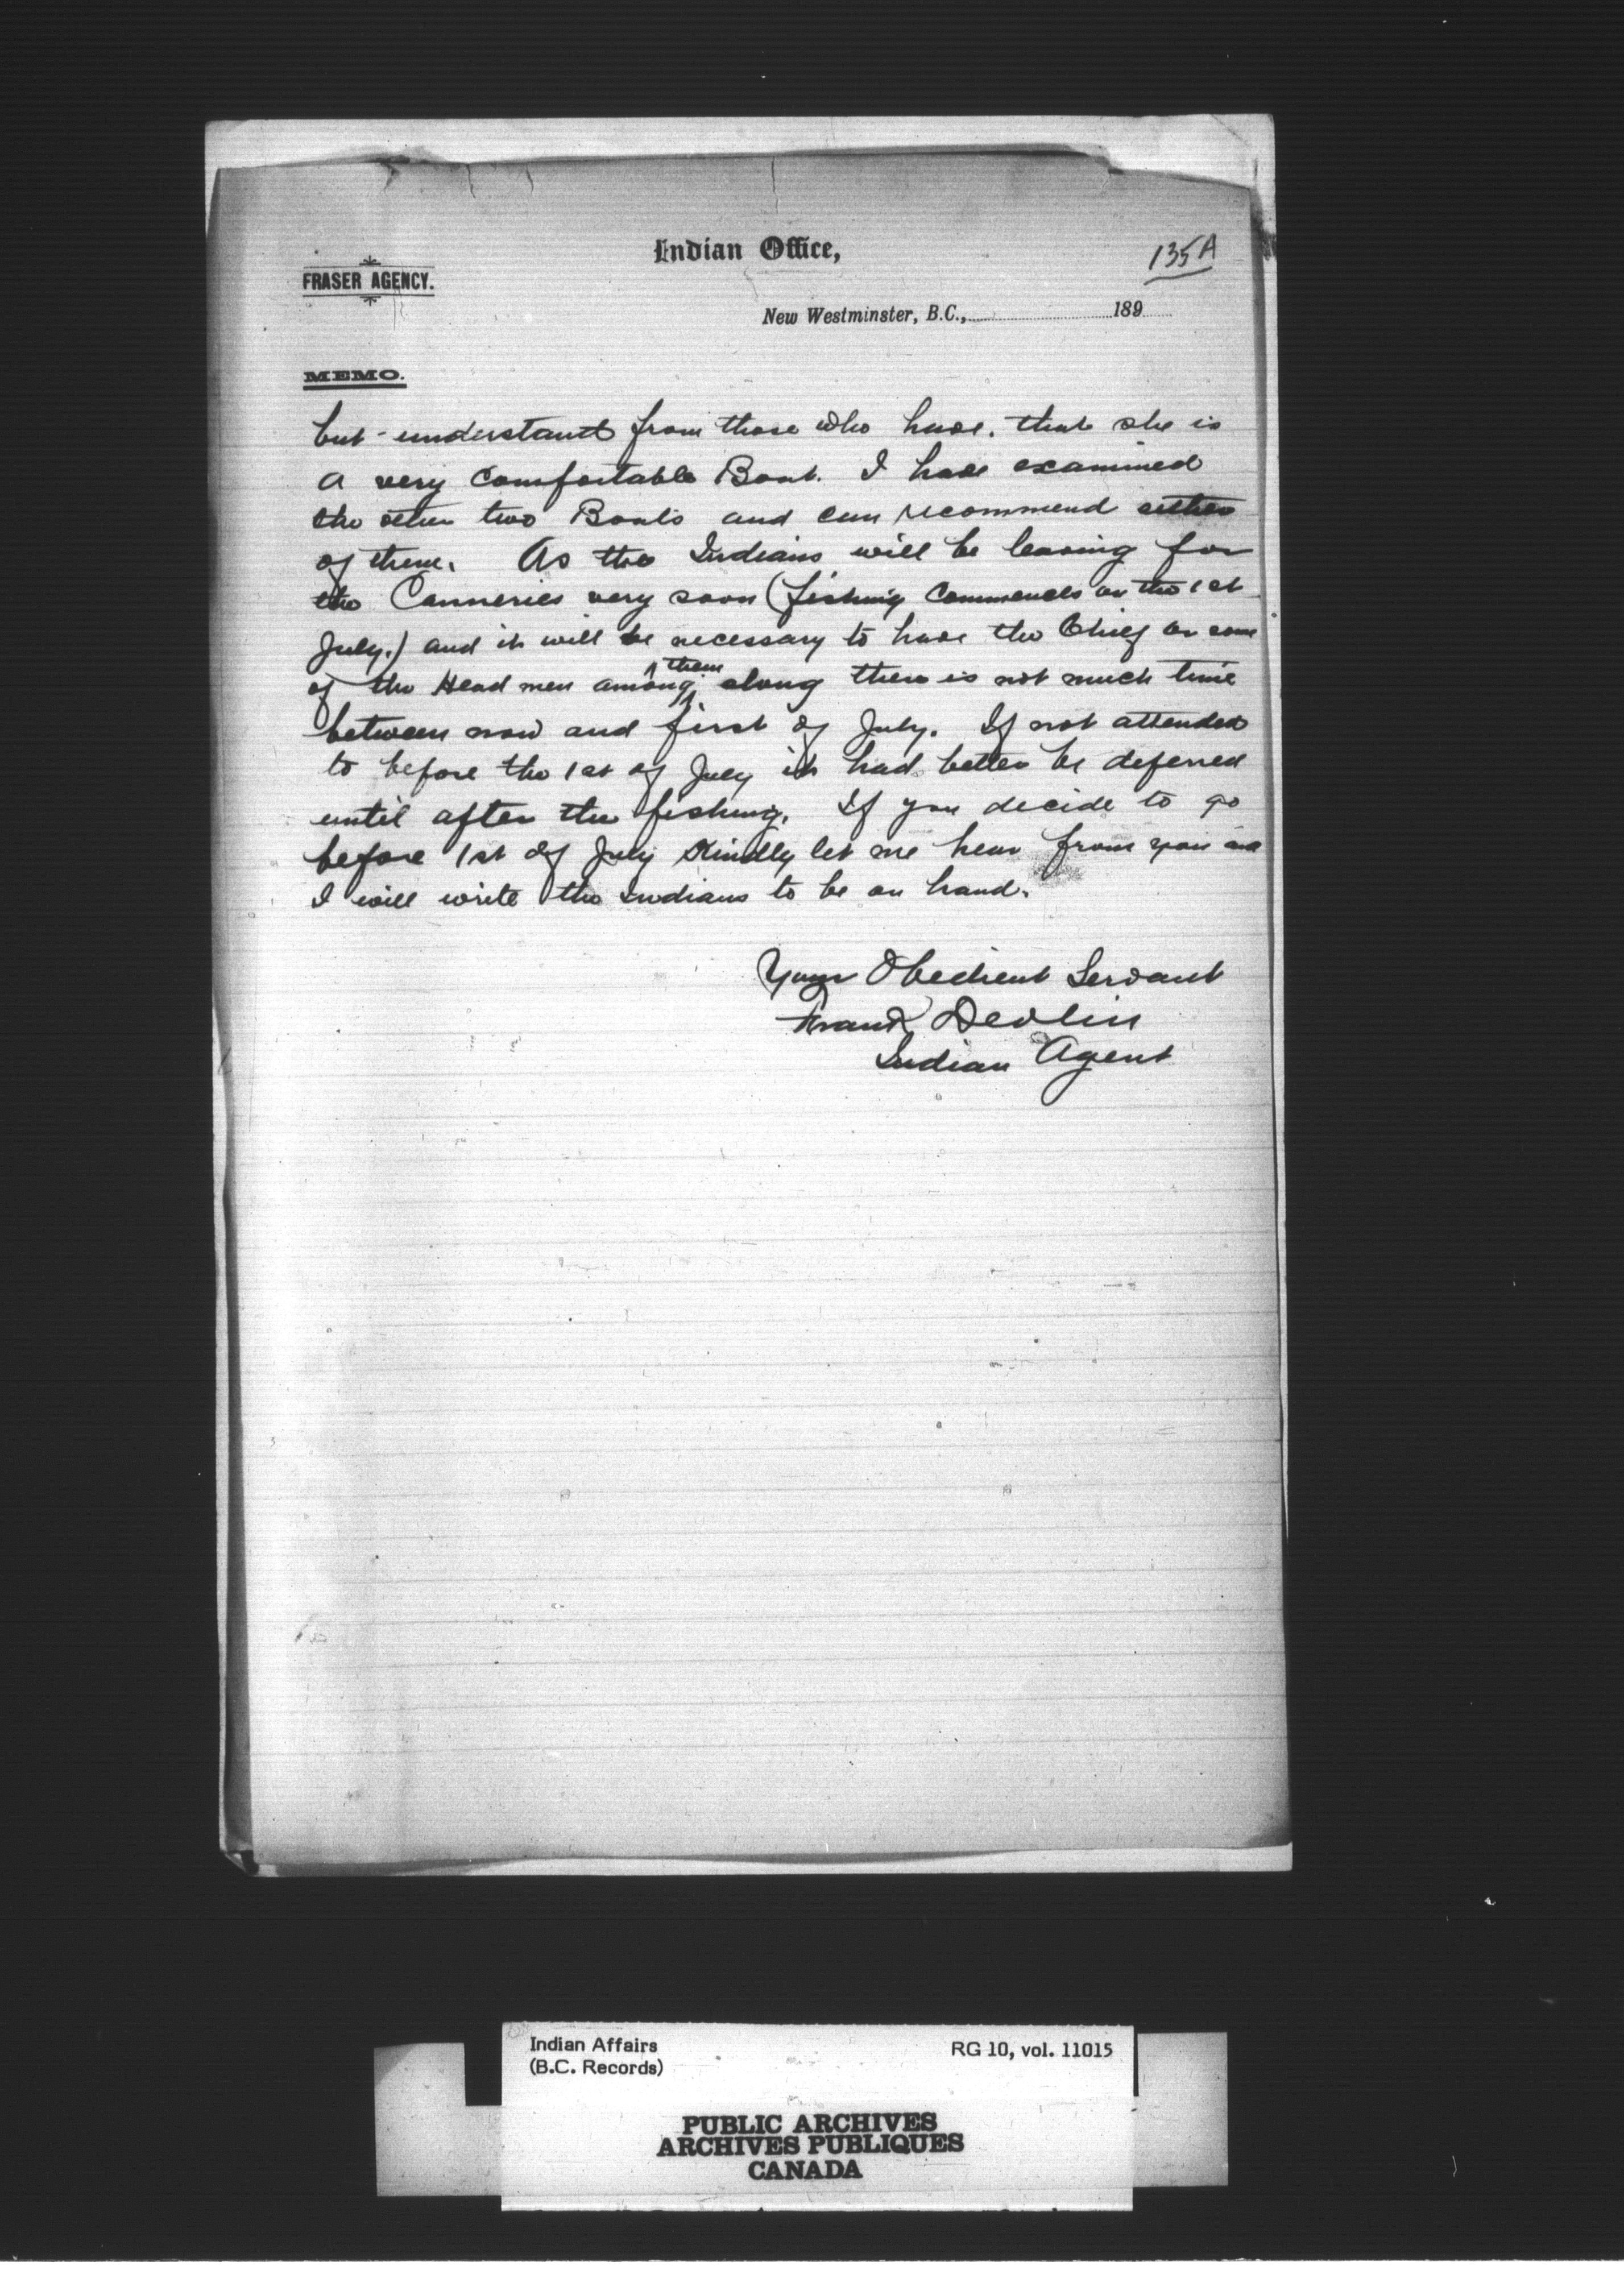 Indian Office,
135A
FRASER AGENCY.
New Westminster, B.C., 189
MEMO.
but understand from those who have. that she is
a very comfortable Boat. I have examined
the other two Boats and can recommend either
of them. As the Indians will be leaving for
the Canneries very soon (fishing commences on the 1st
July.) and it will be necessary to have the Chief or some
of the Head men among them along there is not much time
between now and first of July. If not attended
to before the 1st of July it had better be deferred
until after the fishing. If you decide to go
before 1st of July Kindly let me hear from you and
I will write the Indians to be on hand.
Your Obedient Servant
Frank Devlin
Indian Agent
Indian Affairs RG 10, vol. 11015
(B.C. Records)
PUBLIC ARCHIVES
ARCHIVES PUBLIQUES
CANADA